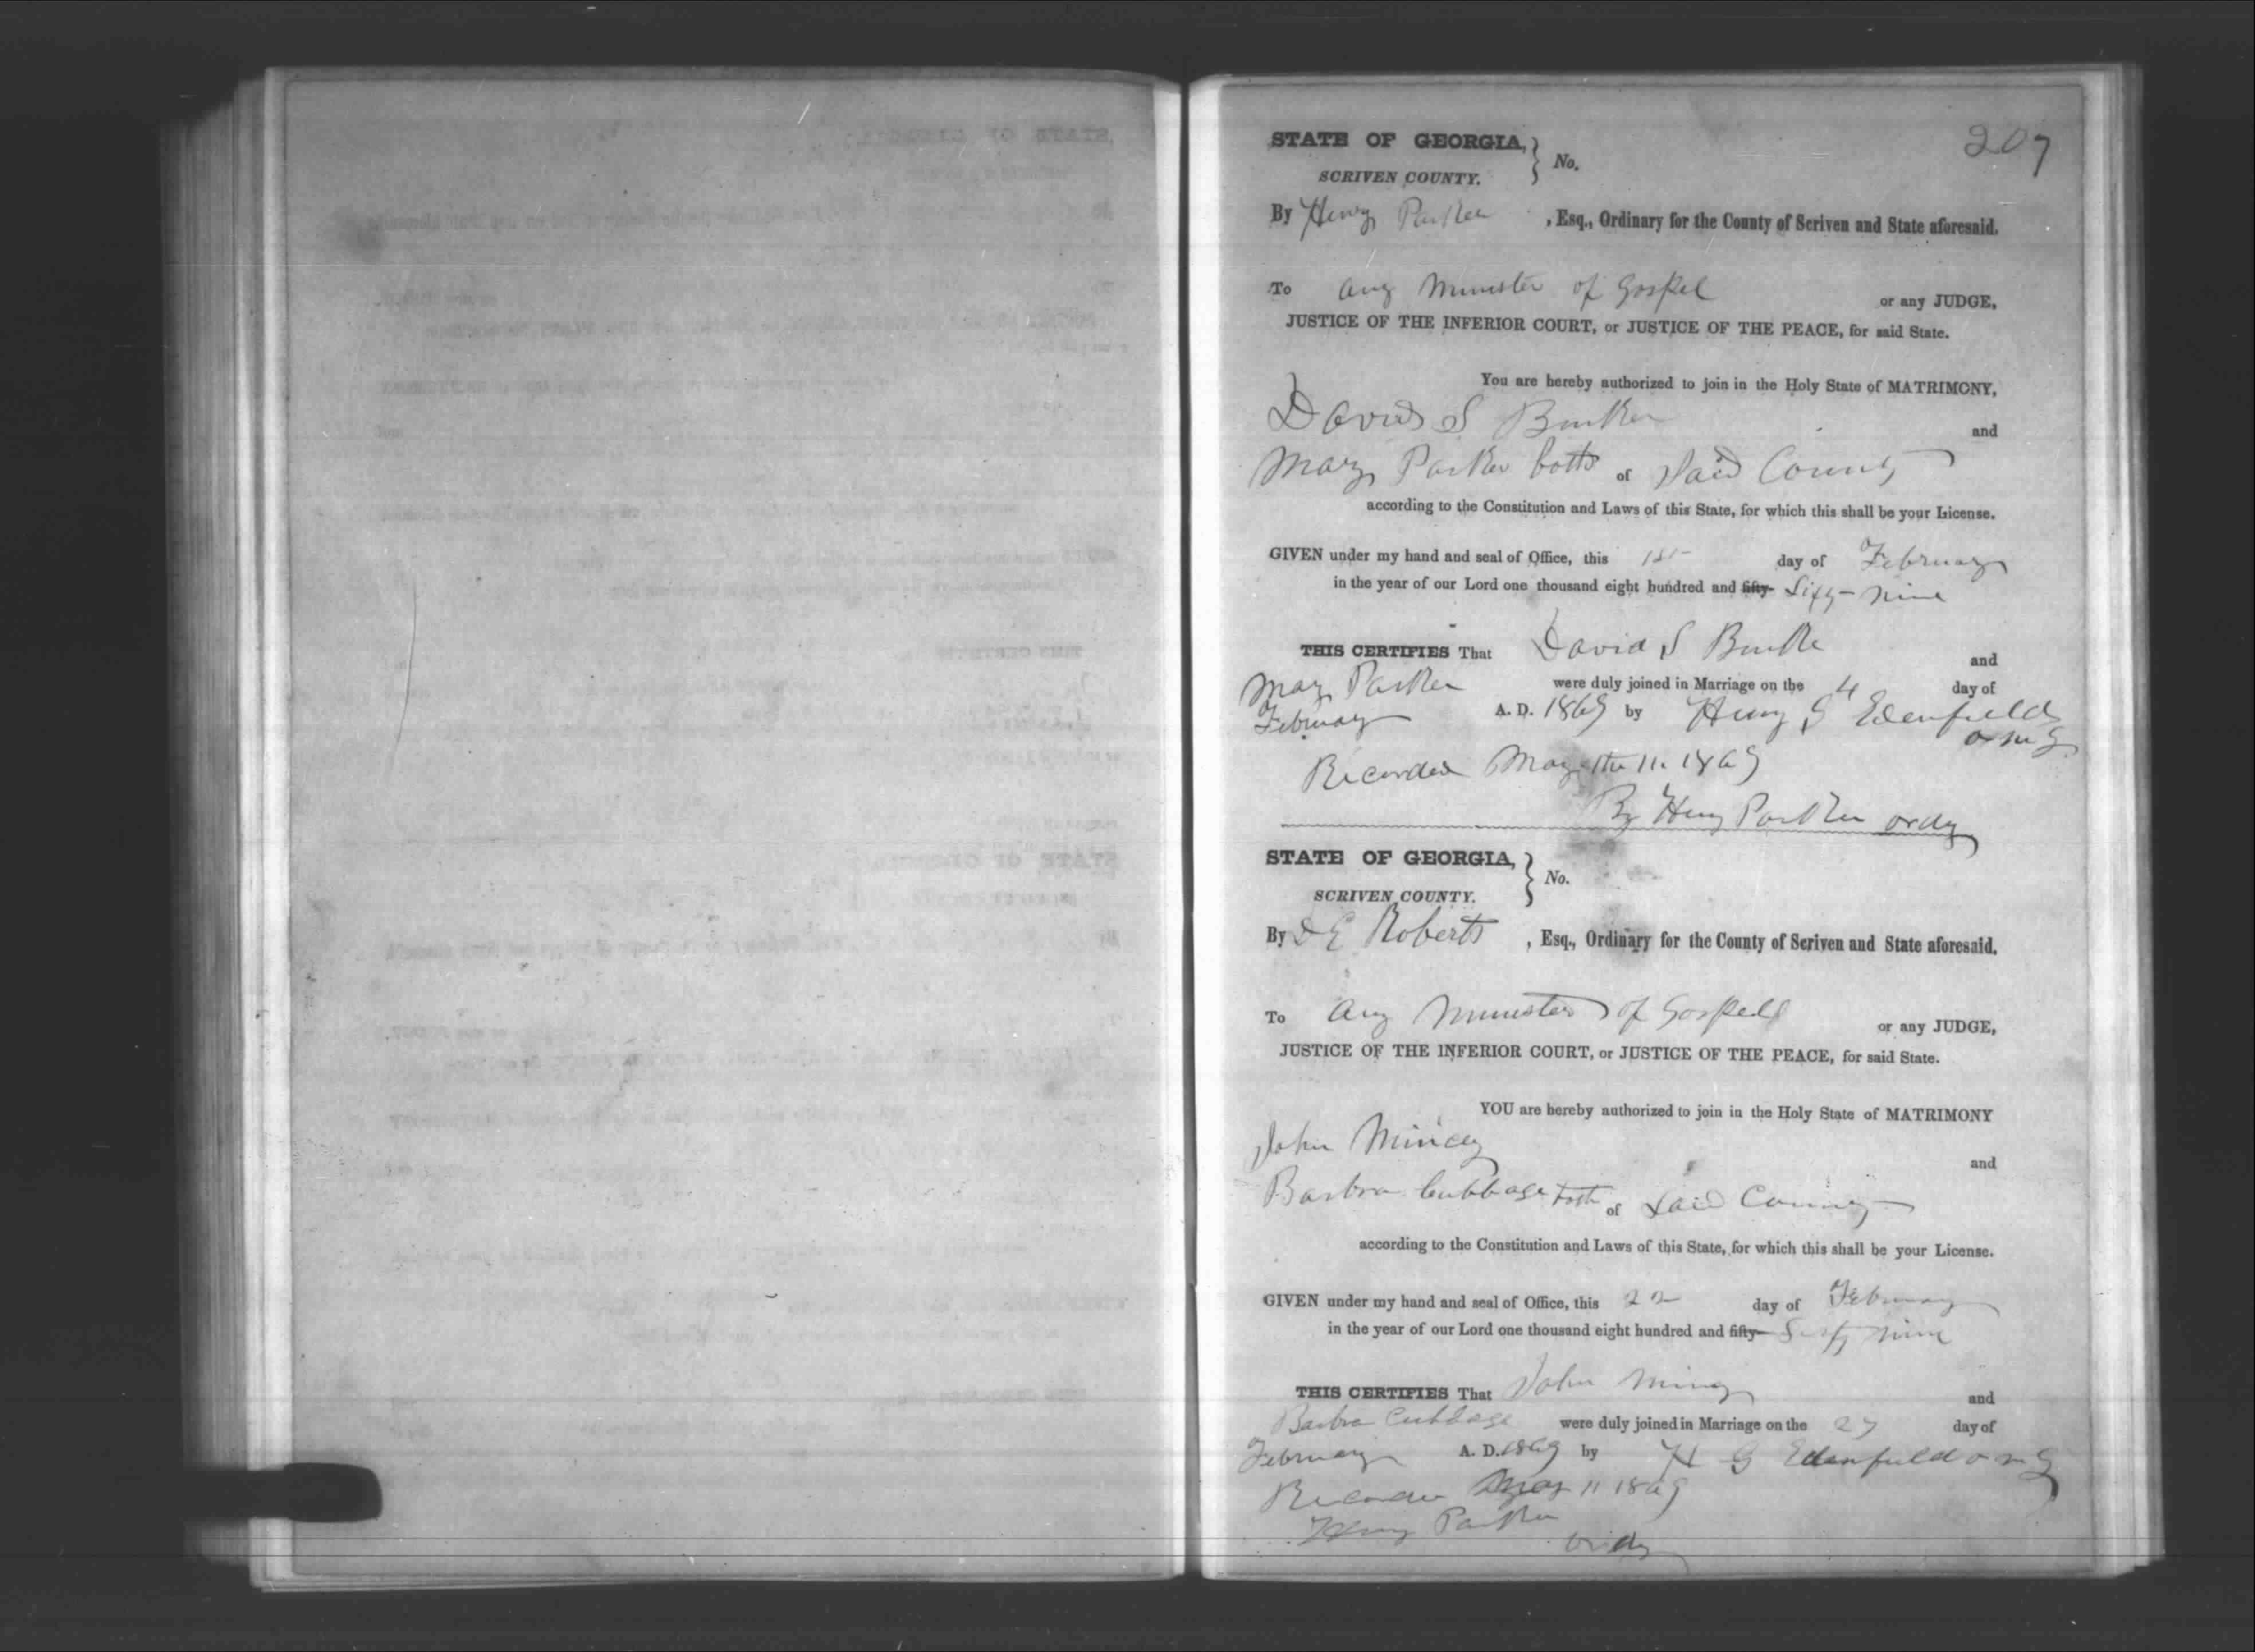 207
STATE OF GEORGIA, } No.
SCRIVEN COUNTY.
By Henry Parker, Esq., Ordinary for the County of Scriven and State aforesaid.
To any Minister of Gospel or any JUDGE,
JUSTICE OF THE INFERIOR COURT, or JUSTICE OF THE PEACE, for said State.
You are hereby authorized to join in the Holy State of MATRIMONY,
David S Burke and
Mary Parker both of Said County
according to the Constitution and Laws of this State, for which this shall be your License.
GIVEN under my hand and seal of Office, this 1st day of February
in the year of our Lord one thousand eight hundred and fifty- Sixty-nine
THIS CERTIFIES That David S Burke and
Mary Parker were duly joined in Marriage on the 4 day of
February A. D. 1869 by Henry G Edenfield
o m G
Recorded May the 11. 1869
By Henry Parker ordy
STATE OF GEORGIA, } No.
SCRIVEN COUNTY.
By D E Roberts, Esq., Ordinary for the County of Scriven and State aforesaid.
To any Minister of Gospell or any JUDGE,
JUSTICE OF THE INFERIOR COURT, or JUSTICE OF THE PEACE, for said State.
YOU are hereby authorized to join in the Holy State of MATRIMONY
John Mincey and
Barbra Cubbage both of Said County
according to the Constitution and Laws of this State, for which this shall be your License.
GIVEN under my hand and seal of Office, this 22 day of February
in the year of our Lord one thousand eight hundred and fifty- Sixty nine
THIS CERTIFIES That John Mincy and
Barbra Cubbage were duly joined in Marriage on the 27 day of
February A. D. 1869 by H G Edenfield o m G
Recorded May 11 1869
Henry Parker
ordy